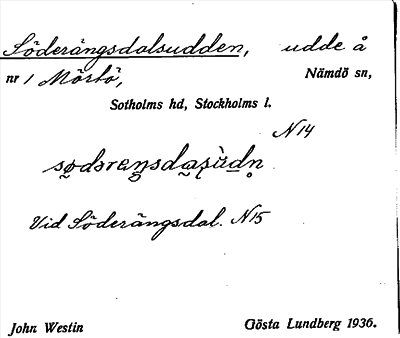 Söderängsdalsudden, udde å
nr 1 Mörtö, Nämdö sn,
Sotholms hd, Stockholms l.
N14
Vid Söderängsdal. N15
John Westin Gösta Lundberg 1936.